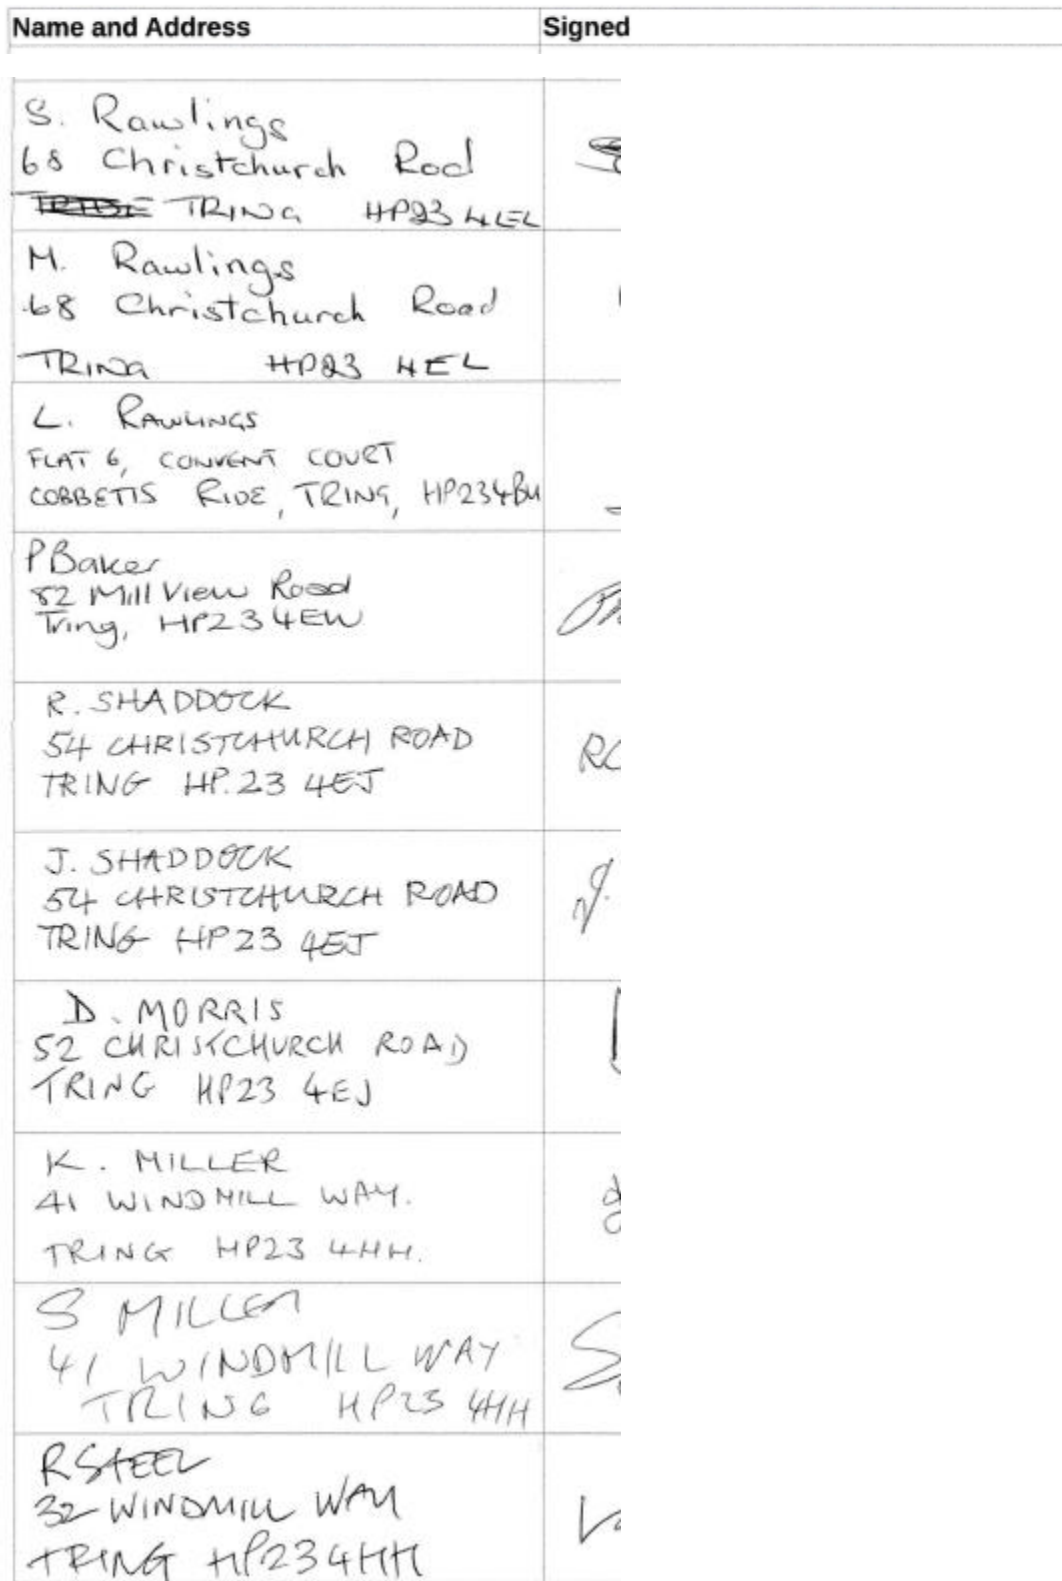 Name and Address Signed
S. Rawlings
68 Christchurch Rod
TRING HP23 4EL
M. Rawlings
68 Christchurch Road
TRING HP23 4EL
L. RAWLINGS
FLAT 6, CONVENT COURT
COBBETTS RIDE, TRING, HP234BU
P Baker
82 Mill View Road
Tring, HP23 4EW
R. SHADDOCK
54 CHRISTCHURCH ROAD
TRING HP.23 4EJ
J. SHADDOCK
54 CHRISTCHURCH ROAD
TRING HP23 4EJ
D. MORRIS
52 CHRISTCHURCH ROAD
TRING HP23 4EJ
K. MILLER
41 WINDMILL WAY.
TRING HP23 4HH.
S MILLER
41 WINDMILL WAY
TRING HP23 4HH
R STEEL
32 WINDMILL WAY
TRING HP23 4HH